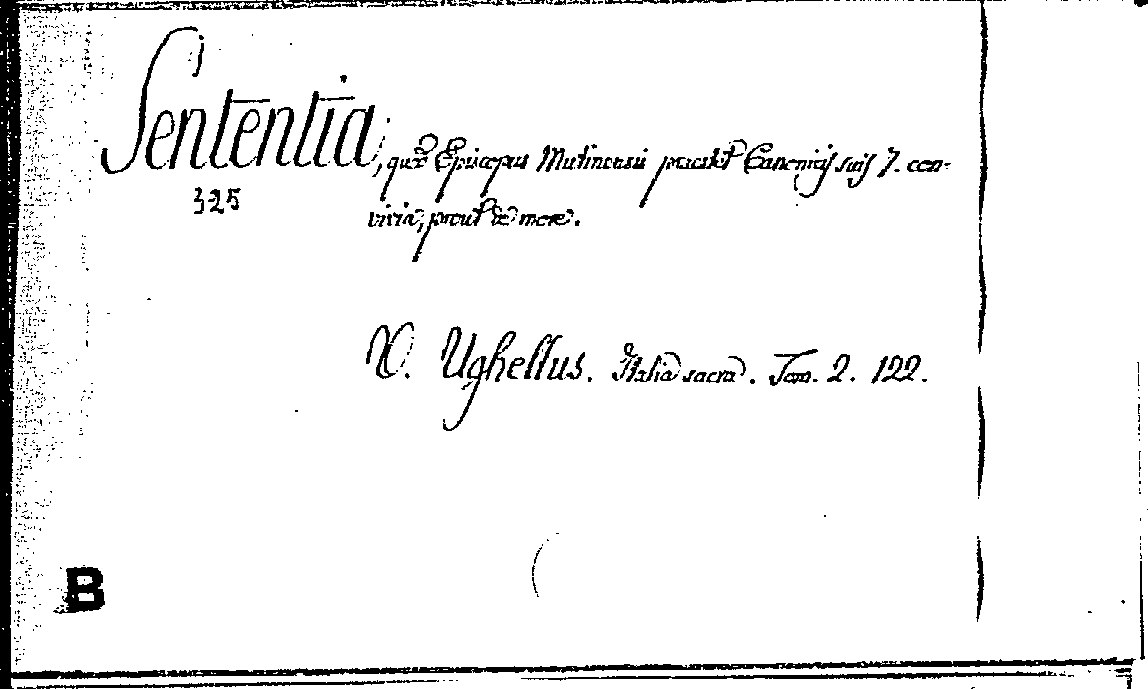 Sententia, qua Episcopus Mutinensis praestet Canonicis suis 7. con-
325
vivia, prout de more.
V. Ughellus. Italia sacra. Tom. 2. 122.
B